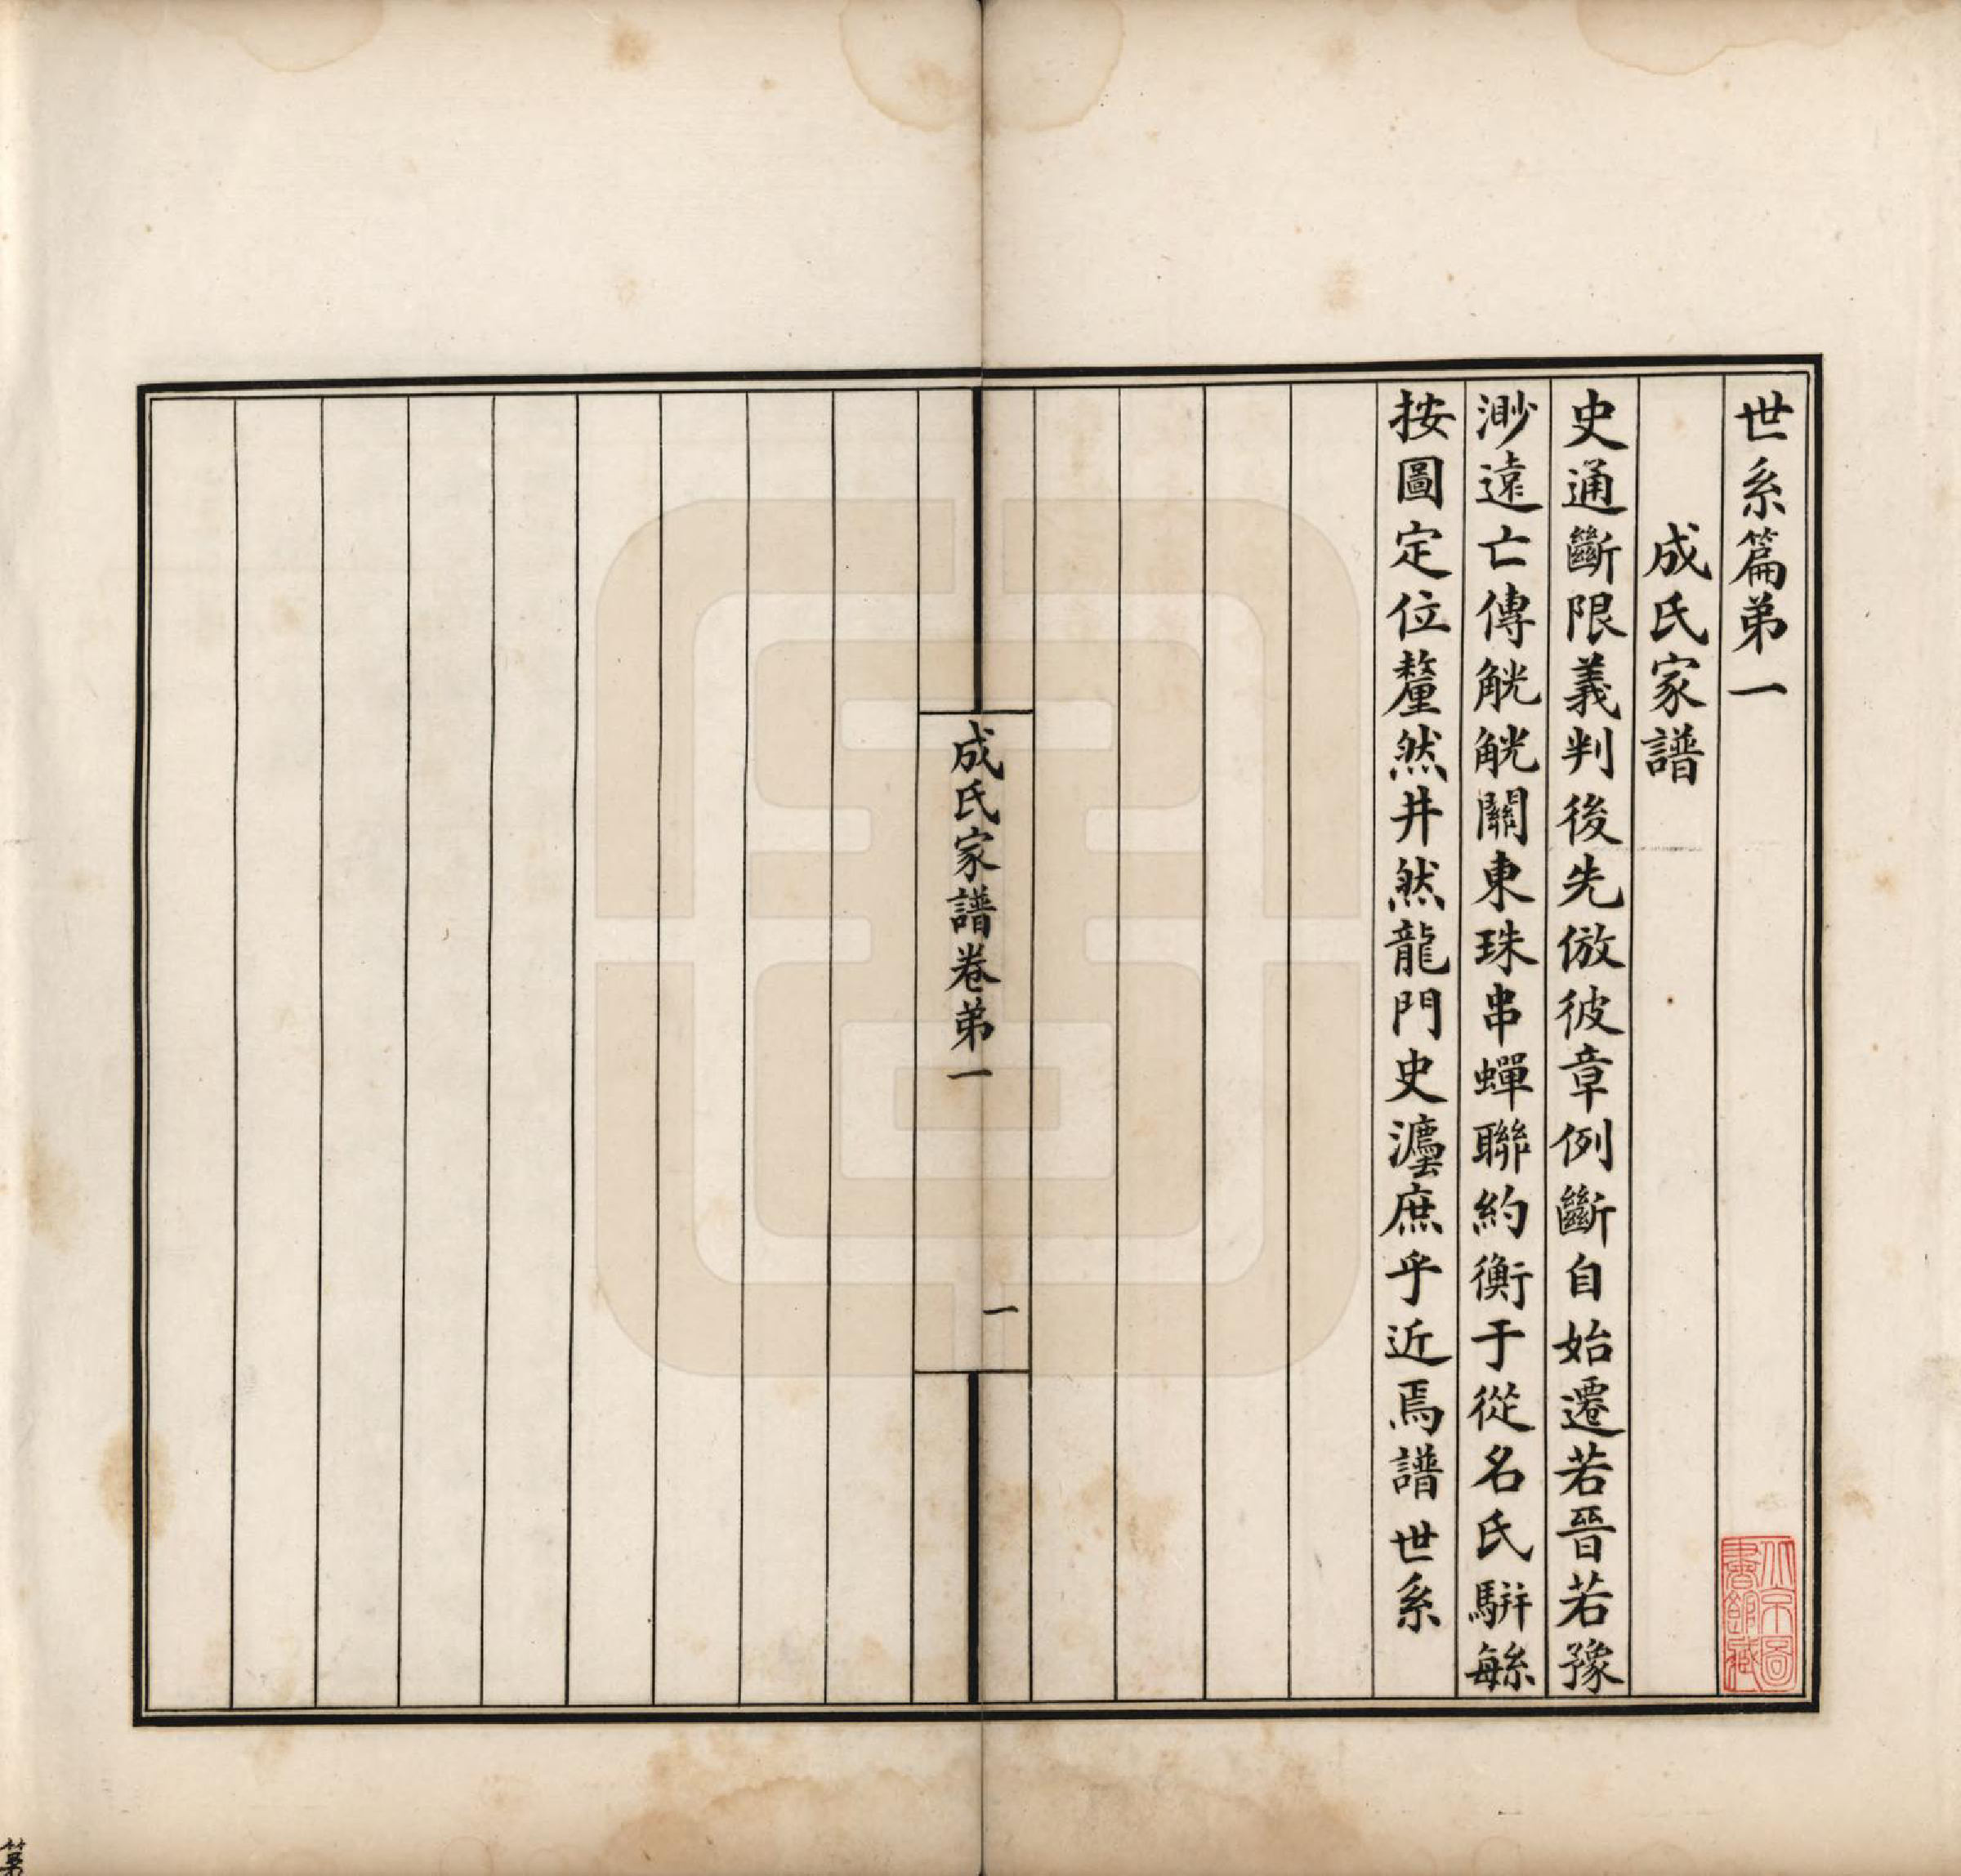 世系篇弟一
成氏家譜
史通斷限義判後先倣彼章例斷自始遷若晉若豫
渺遠亡傳觥觥關東珠串蟬聯約衡于從名氏駢緐
按圖定位釐然井然龍門史灋庶乎近焉譜世系
成氏家譜卷弟一
一
北京圖書館藏